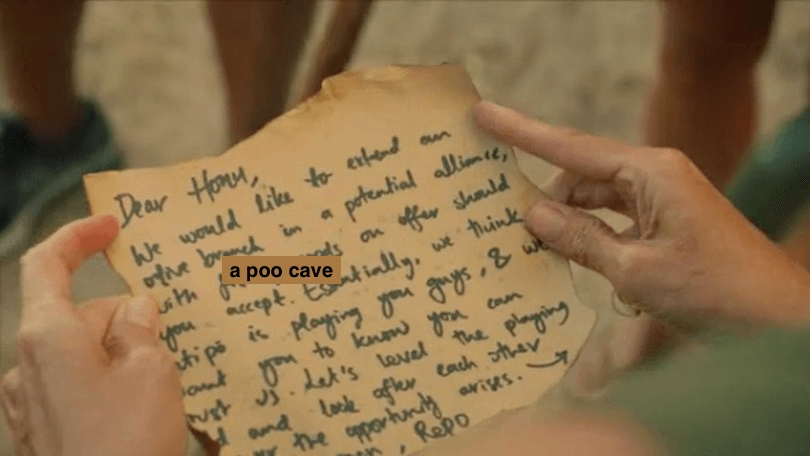 Dear Honu,
We would like to extend an
olive branch in a potential alliance,
with on offer should
a poo cave
you accept. Essentially, we think
is playing you guys, & we
you to know you can
us. Let's level the playing
and look after each other
the opportunity arises.
, Repo